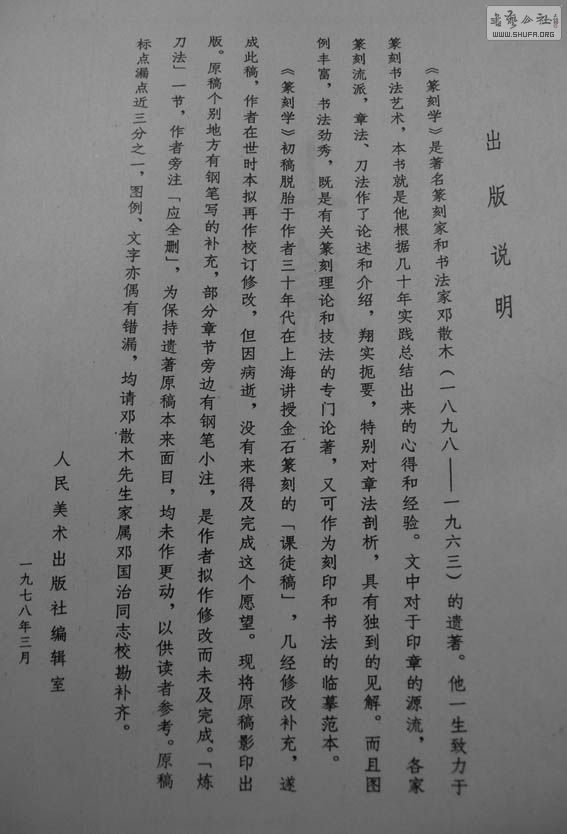 出版说明
《篆刻学》是著名篆刻家和书法家邓散木（一八九八——一九六三）的遗著。他一生致力于
篆刻书法艺术，本书就是他根据几十年实践总结出来的心得和经验。文中对于印章的源流，各家
篆刻流派，章法、刀法作了论述和介绍，翔实扼要，特别对章法剖析，具有独到的见解。而且图
例丰富，书法劲秀，既是有关篆刻理论和技法的专门论著，又可作为刻印和书法的临摹范本。
《篆刻学》初稿脱胎于作者三十年代在上海讲授金石篆刻的「课徒稿」，几经修改补充，遂
成此稿，作者在世时本拟再作校订修改，但因病逝，没有来得及完成这个愿望。现将原稿影印出
版。原稿个别地方有钢笔写的补充，部分章节旁边有钢笔小注，是作者拟作修改而未及完成。「炼
刀法」一节，作者旁注「应全删」，为保持遗著原稿本来面目，均未作更动，以供读者参考。原稿
标点漏点近三分之一，图例、文字亦偶有错漏，均请邓散木先生家属邓国治同志校勘补齐。
人民美术出版社编辑室
一九七八年三月
WWW.SHUFA.ORG